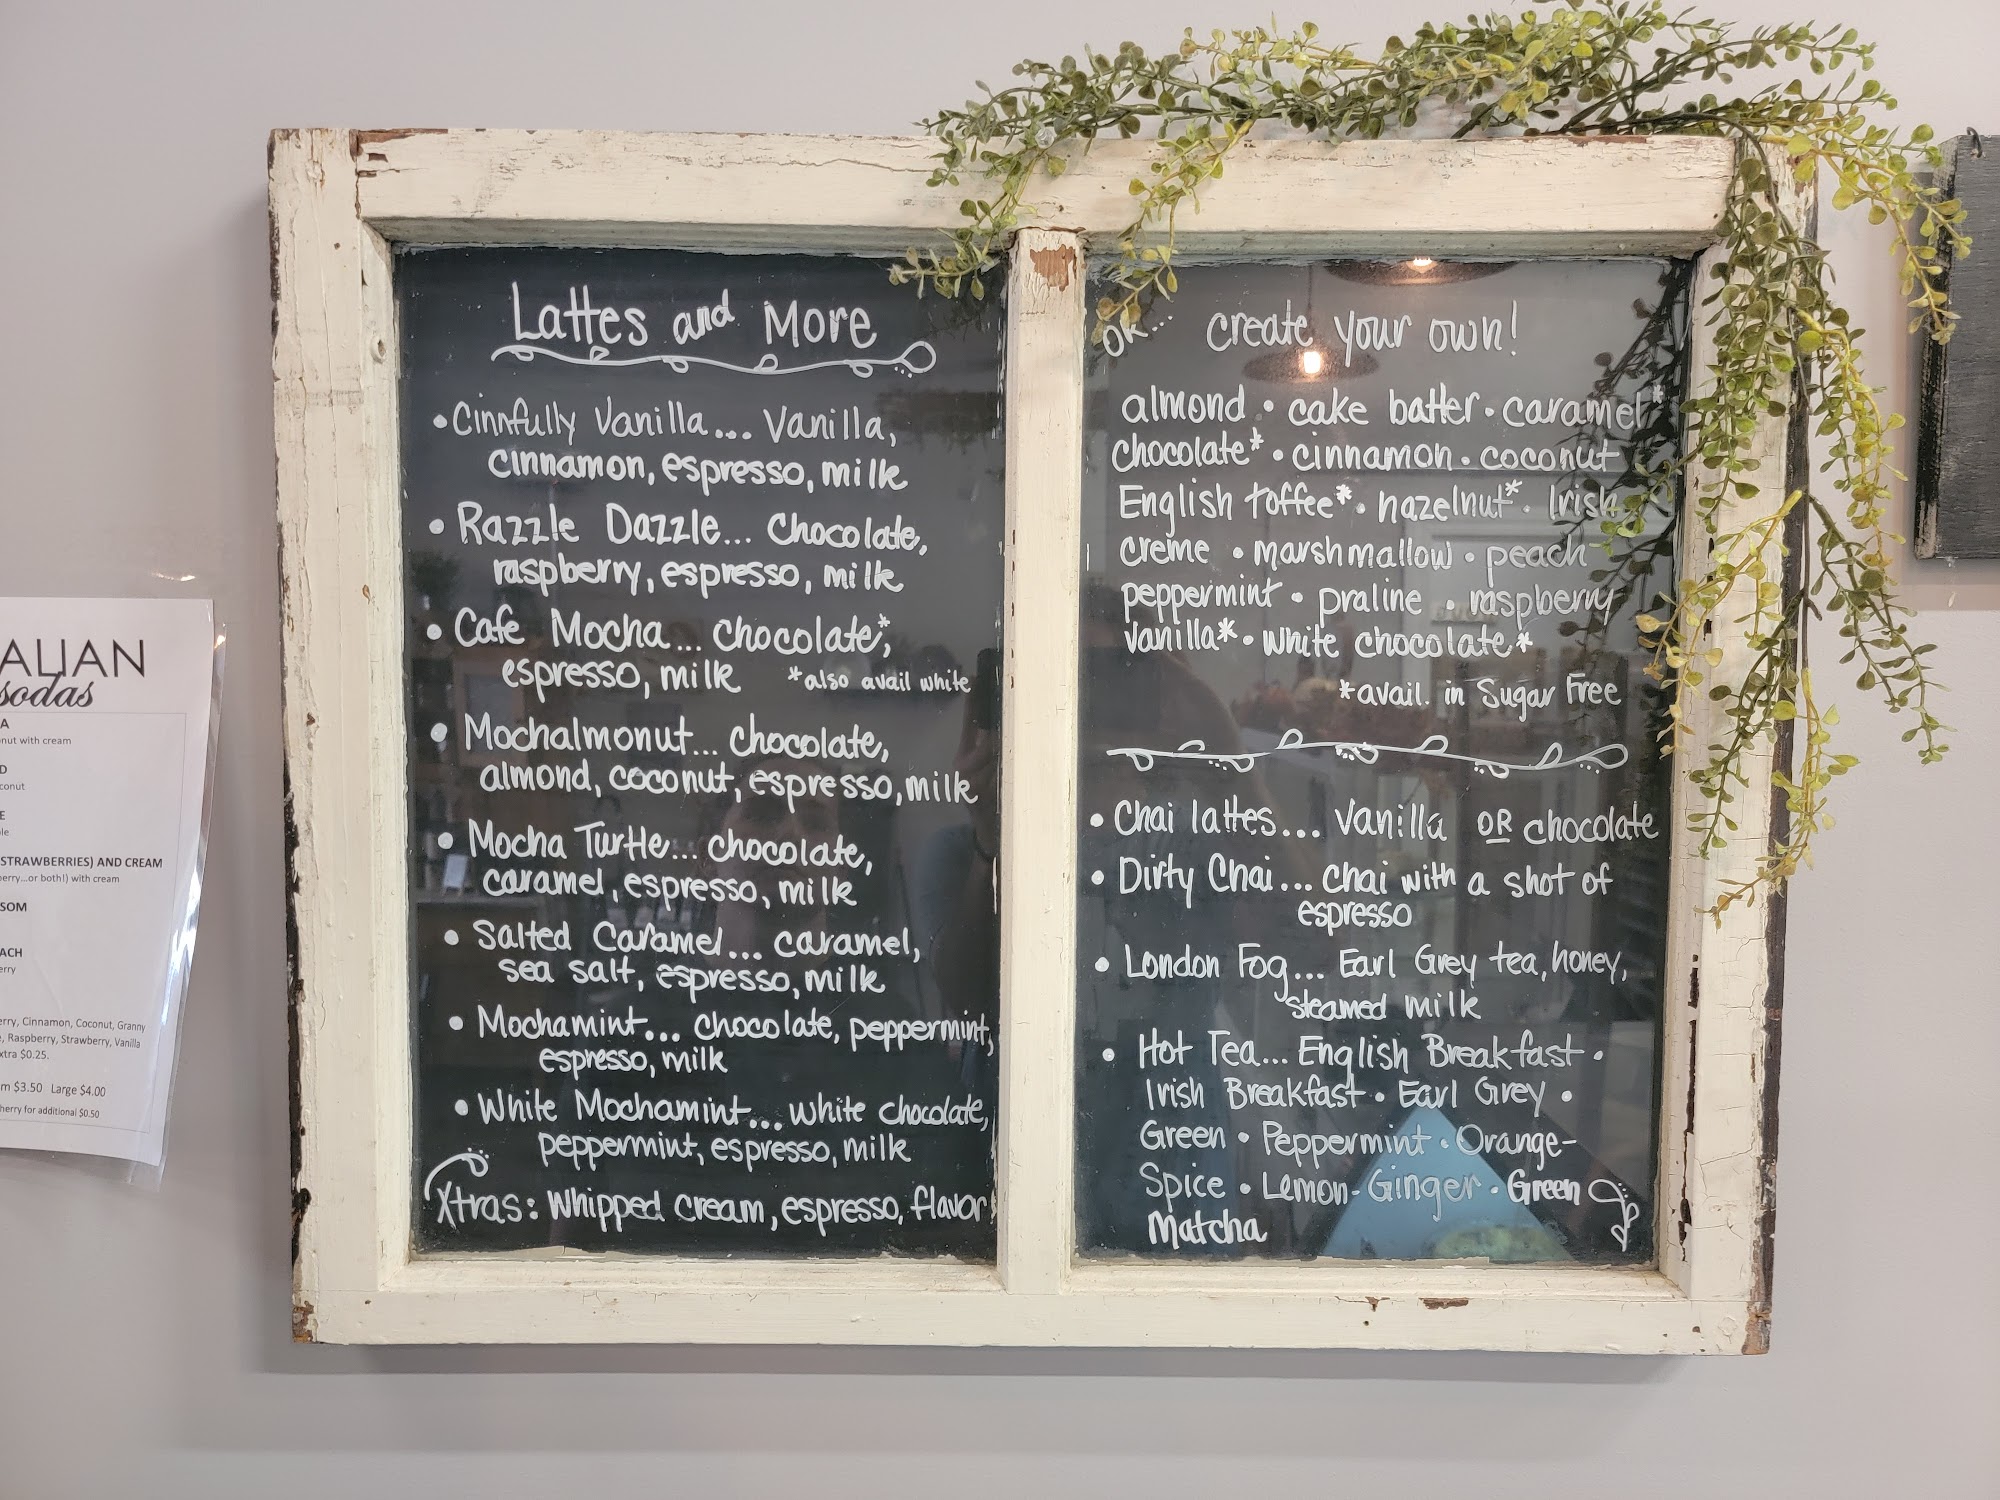 Lattes and More
• Cinnfully Vanilla... Vanilla,
cinnamon, espresso, milk
• Razzle Dazzle... Chocolate,
raspberry, espresso, milk
• Cafe Mocha... chocolate*,
espresso, milk *also avail white
• Mochalmonut... chocolate,
almond, coconut, espresso, milk
• Mocha Turtle... chocolate,
caramel, espresso, milk
• Salted Caramel... caramel,
sea salt, espresso, milk
• Mochamint... chocolate, peppermint,
espresso, milk
• White Mochamint... white chocolate,
peppermint, espresso, milk
Xtras: Whipped cream, espresso, flavor
OR... create your own!
almond • cake batter • caramel*
chocolate* • cinnamon • coconut
English toffee* • hazelnut* • Irish
creme • marshmallow • peach
peppermint • praline • raspberry
vanilla* • white chocolate*
*avail. in Sugar Free
• Chai lattes... vanilla OR chocolate
• Dirty Chai... chai with a shot of
espresso
• London Fog... Earl Grey tea, honey,
steamed milk
• Hot Tea... English Breakfast •
Irish Breakfast • Earl Grey •
Green • Peppermint • Orange-
Spice • Lemon-Ginger • Green
Matcha
ALIAN
sodas
A
nut with cream
D
conut
E
ple
STRAWBERRIES) AND CREAM
berry...or both!) with cream
SOM
ACH
erry
erry, Cinnamon, Coconut, Granny
e, Raspberry, Strawberry, Vanilla
xtra $0.25.
m $3.50 Large $4.00
herry for additional $0.50